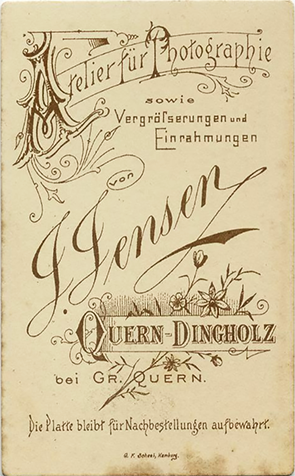 Atelier für Photographie
sowie
Vergröfserungen und
Einrahmungen
von
J. Jensen
QUERN-DINGHOLZ
bei GR. QUERN.
Die Platte bleibt für Nachbestellungen aufbewahrt.